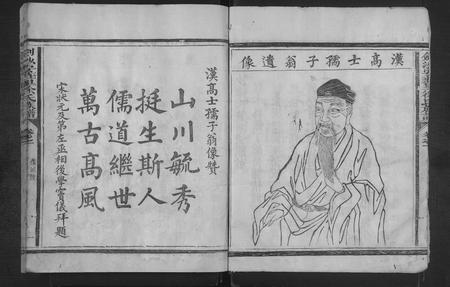 像遺翁子孺士高漢
漢高士孺子翁像贊
山川毓秀
挺生斯人
儒道繼世
萬古高風
宋狀元及第左丞相後學竇儀拜題